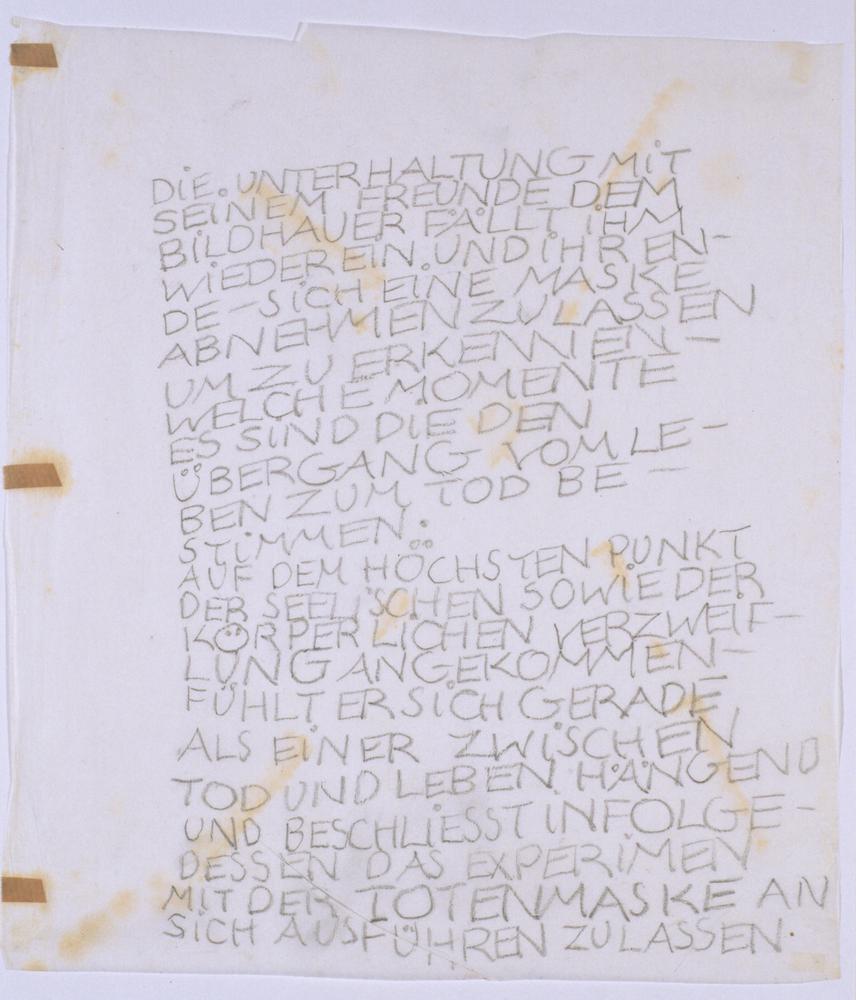 DiE UNTERHALTUNG MiT
SEiNEM FREUNDE DEM
BiLDHAUER FÄLLT iHM
WiEDER EIN. UND iHR EN-
DE-SiCH EiNE MASKE
ABNEHMEN ZU LASSEN
UM ZU ERKENNEN-
WELCHE MOMENTE
ES SiND DiE DEN
ÜBERGANG VOM LE-
BEN ZUM TOD BE-
STiMMEN:
AUF DEM HÖCHSTEN PUNKT
DER SEELiSCHEN SOWIE DER
KÖRPERLICHEN VERZWEIF-
LUNG ANGEKOMMEN-
FÜHLT ER SiCH GERADE
ALS EiNER ZWiSCHEN
TOD UND LEBEN HÄNGEND
UND BESCHLiESST INFOLGE-
DESSEN DAS EXPERiMEN
MiT DER TOTENMASKE AN
SiCH AUSFÜHREN ZU LASSEN.